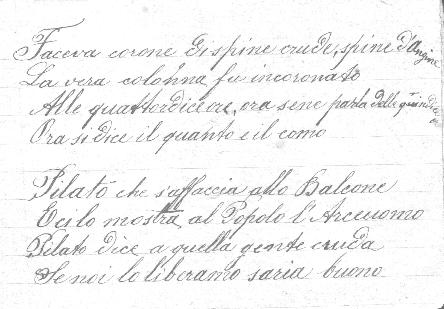 Faceva corone di spine crude, spine d'
La vera colonna fu incoronato
Alle quattordici ore, ora sene parla delle quindici
Ora si dice il quanto e il como
Pilato che s'affaccia allo Balcone
E ci lo mostra al Popolo l'Arceuomo
Pilato dice a quella gente cruda
Se noi lo liberamo saria buono